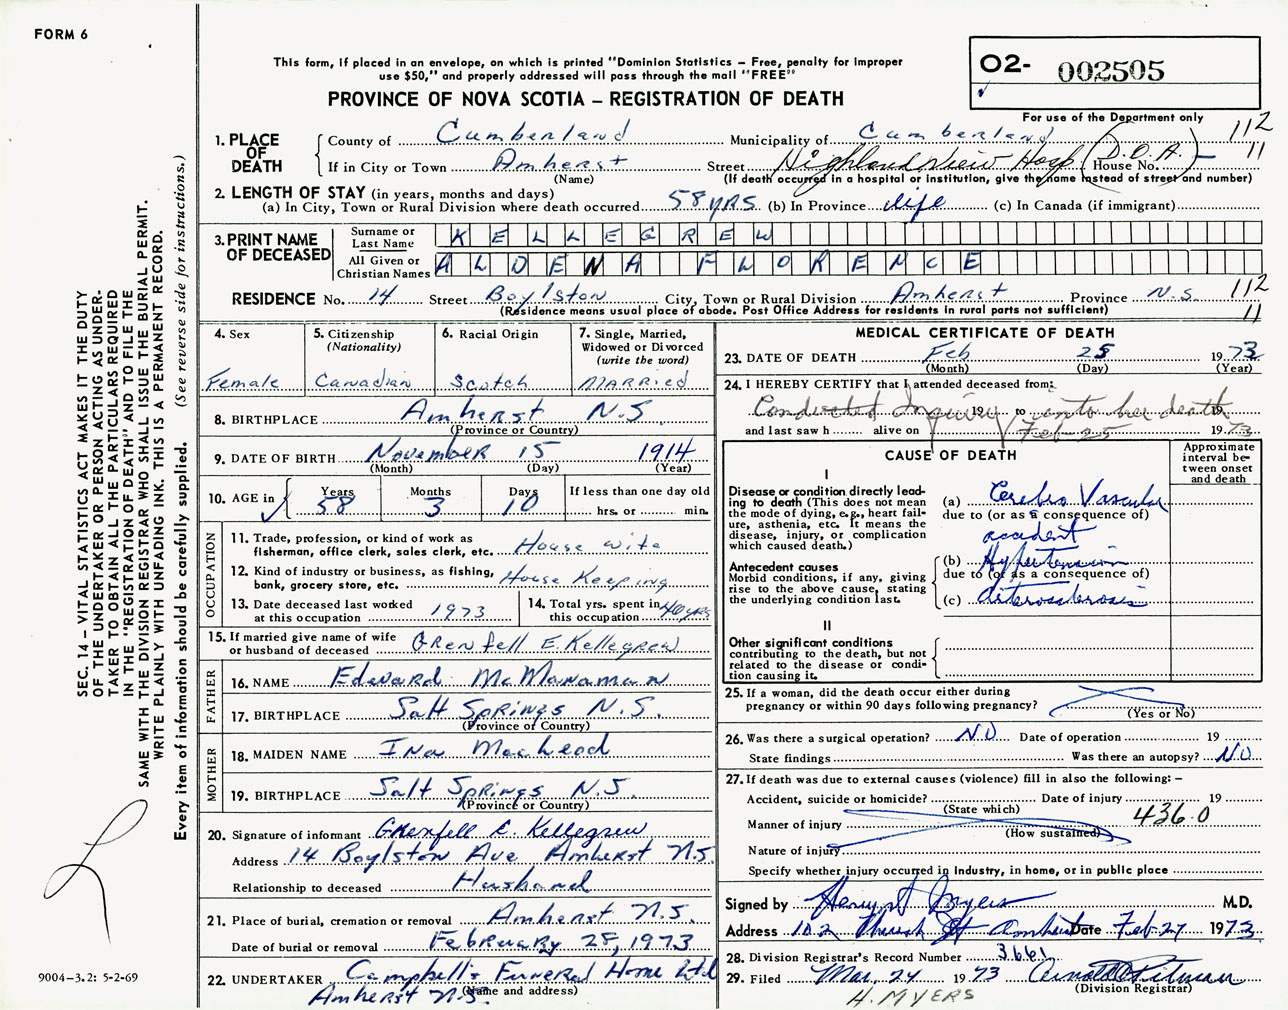 FORM 6
This form, if placed in an envelope, on which is printed "Dominion Statistics – Free, penalty for improper
use $50," and properly addressed will pass through the mail "FREE"
O2- 002505
PROVINCE OF NOVA SCOTIA – REGISTRATION OF DEATH
For use of the Department only
1. PLACE OF DEATH
County of Cumberland Municipality of Cumberland 112
If in City or Town Amherst Street Highland View Hosp (D.O.A.) House No. — 11
(Name) (If death occurred in a hospital or institution, give the name instead of street and number)
2. LENGTH OF STAY (in years, months and days)
(a) In City, Town or Rural Division where death occurred 58 yrs (b) In Province life (c) In Canada (if immigrant)
3. PRINT NAME OF DECEASED
Surname or Last Name KELLEGREW
All Given or Christian Names ALDENA FLORENCE
RESIDENCE No. 14 Street Boylston City, Town or Rural Division Amherst Province N.S. 112
(Residence means usual place of abode. Post Office Address for residents in rural parts not sufficient) 11
4. Sex
Female
5. Citizenship
(Nationality)
Canadian
6. Racial Origin
Scotch
7. Single, Married,
Widowed or Divorced
(write the word)
Married
8. BIRTHPLACE Amherst N.S.
(Province or Country)
9. DATE OF BIRTH November 15 1914
(Month) (Day) (Year)
10. AGE in Years 58 Months 3 Days 10 If less than one day old
hrs. or min.
OCCUPATION
11. Trade, profession, or kind of work as
fisherman, office clerk, sales clerk, etc. House wife
12. Kind of industry or business, as fishing,
bank, grocery store, etc. House Keeping
13. Date deceased last worked
at this occupation 1973
14. Total yrs. spent in
this occupation 40 yrs
15. If married give name of wife
or husband of deceased Grenfell E. Kellegrew
FATHER
16. NAME Edward McManaman
17. BIRTHPLACE Salt Springs N.S.
(Province or Country)
MOTHER
18. MAIDEN NAME Ina MacLeod
19. BIRTHPLACE Salt Springs N.S.
(Province or Country)
20. Signature of informant Grenfell E. Kellegrew
Address 14 Boylston Ave Amherst N.S.
Relationship to deceased Husband
21. Place of burial, cremation or removal Amherst N.S.
Date of burial or removal February 28, 1973
22. UNDERTAKER Campbell's Funeral Home Ltd
Amherst N.S. (Name and address)
MEDICAL CERTIFICATE OF DEATH
23. DATE OF DEATH Feb 25 1973
(Month) (Day) (Year)
24. I HEREBY CERTIFY that I attended deceased from:
Conducted Inquiry 19 to into her death 19
and last saw h alive on Feb-25 1973
CAUSE OF DEATH
Approximate
interval be-
tween onset
and death
I
Disease or condition directly lead-
ing to death (This does not mean
the mode of dying, e.g., heart fail-
ure, asthenia, etc. It means the
disease, injury, or complication
which caused death.)
(a) Cerebro Vascular
due to (or as a consequence of)
accident
Antecedent causes
Morbid conditions, if any, giving
rise to the above cause, stating
the underlying condition last.
(b) Hypertension
due to (or as a consequence of)
(c) Arterosclerosis
II
Other significant conditions
contributing to the death, but not
related to the disease or condi-
tion causing it.
25. If a woman, did the death occur either during
pregnancy or within 90 days following pregnancy?
(Yes or No)
26. Was there a surgical operation? NO Date of operation 19
State findings Was there an autopsy? NO
27. If death was due to external causes (violence) fill in also the following: –
Accident, suicide or homicide? Date of injury 19
(State which)
Manner of injury 436.0
(How sustained)
Nature of injury
Specify whether injury occurred in industry, in home, or in public place
Signed by Henry S Myers M.D.
Address 102 Church St Amherst Date Feb-27 1973
28. Division Registrar's Record Number 3661
29. Filed Mar. 24 1973 Pitman
(Division Registrar)
H. MYERS
SEC. 14 – VITAL STATISTICS ACT MAKES IT THE DUTY
OF THE UNDERTAKER OR PERSON ACTING AS UNDER-
TAKER TO OBTAIN ALL THE PARTICULARS REQUIRED
IN THE "REGISTRATION OF DEATH" AND TO FILE THE
SAME WITH THE DIVISION REGISTRAR WHO SHALL ISSUE THE BURIAL PERMIT.
WRITE PLAINLY WITH UNFADING INK. THIS IS A PERMANENT RECORD.
Every item of information should be carefully supplied. (See reverse side for instructions.)
9004-3.2: 5-2-69